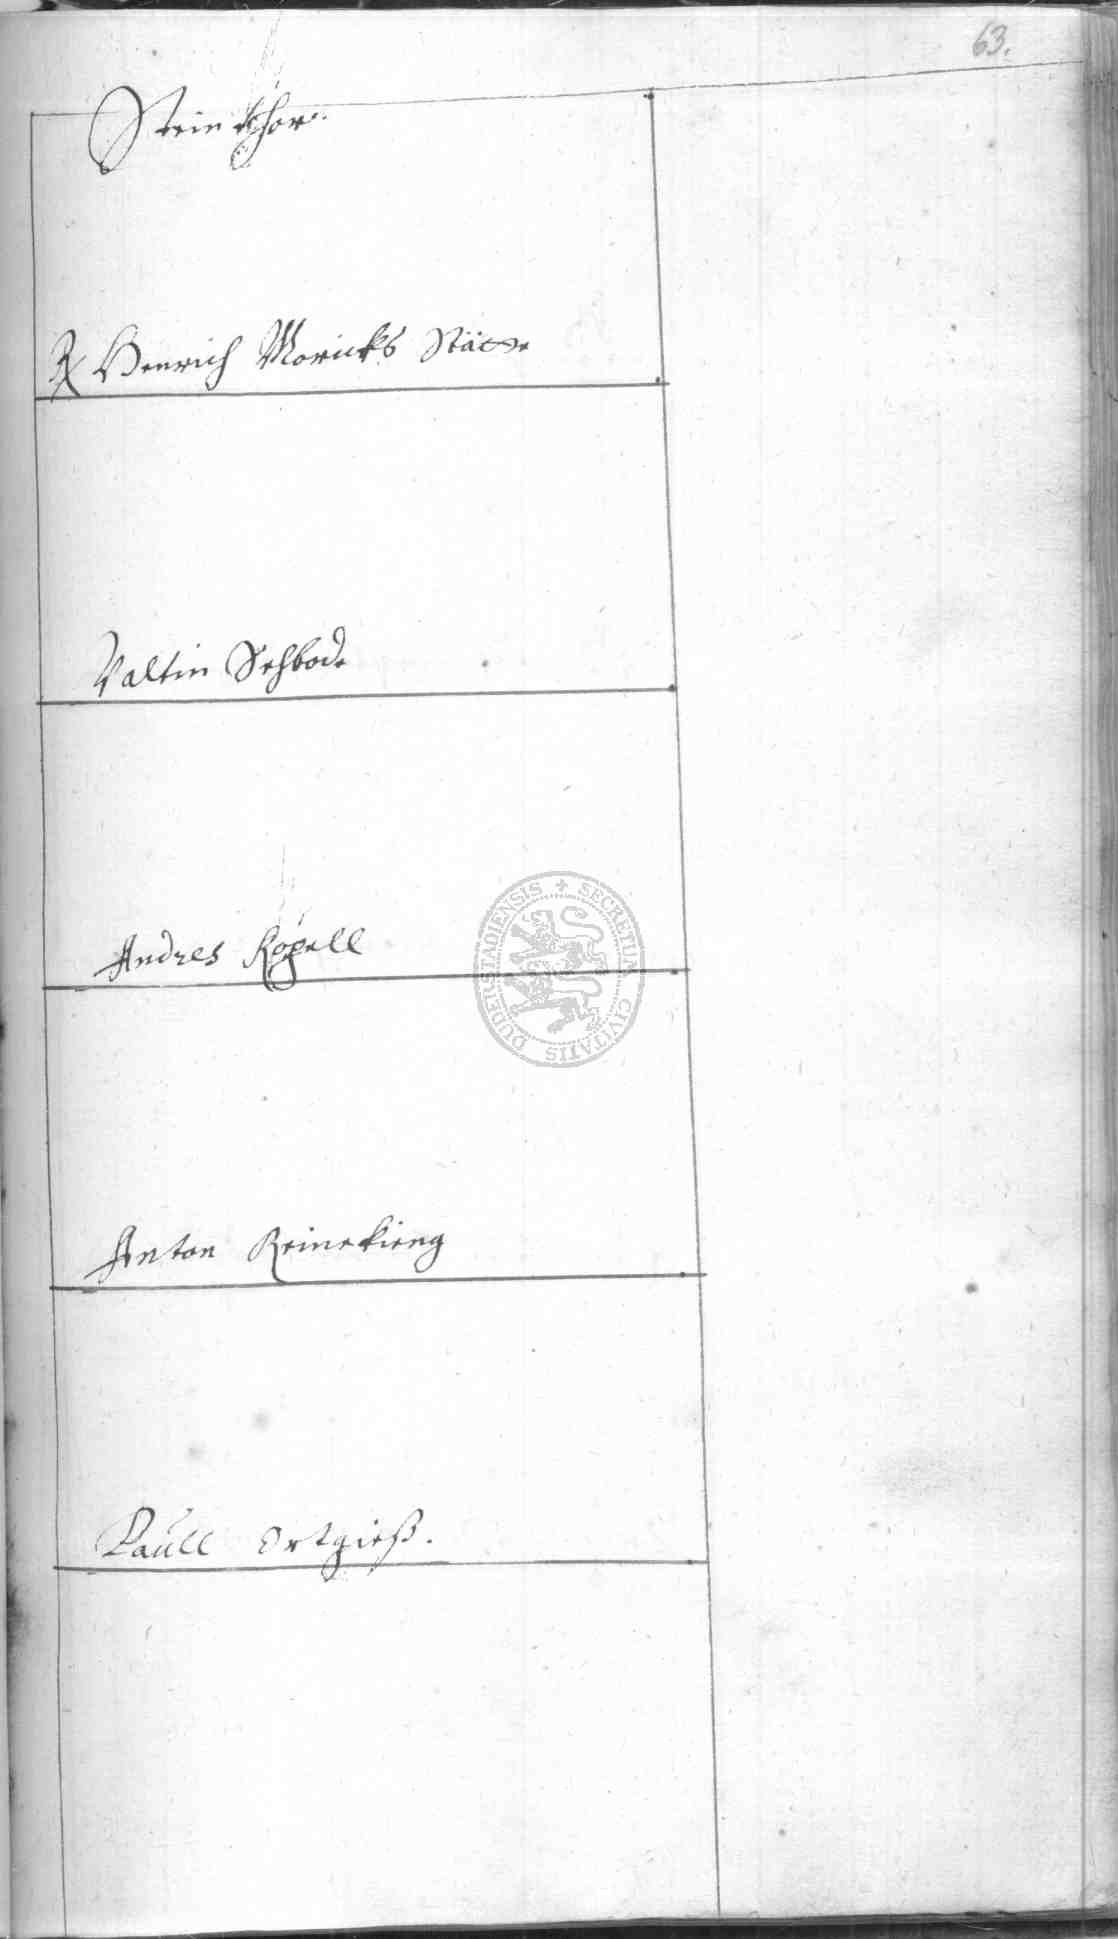 63.
Steinthor.
Henrich Moricks Stätte
Valtin Sehbode
Andres Kopell
Anton Reinekieng
Paull Ortgieß.
SECRETUM CIVITATIS DUDERSTADIENSIS